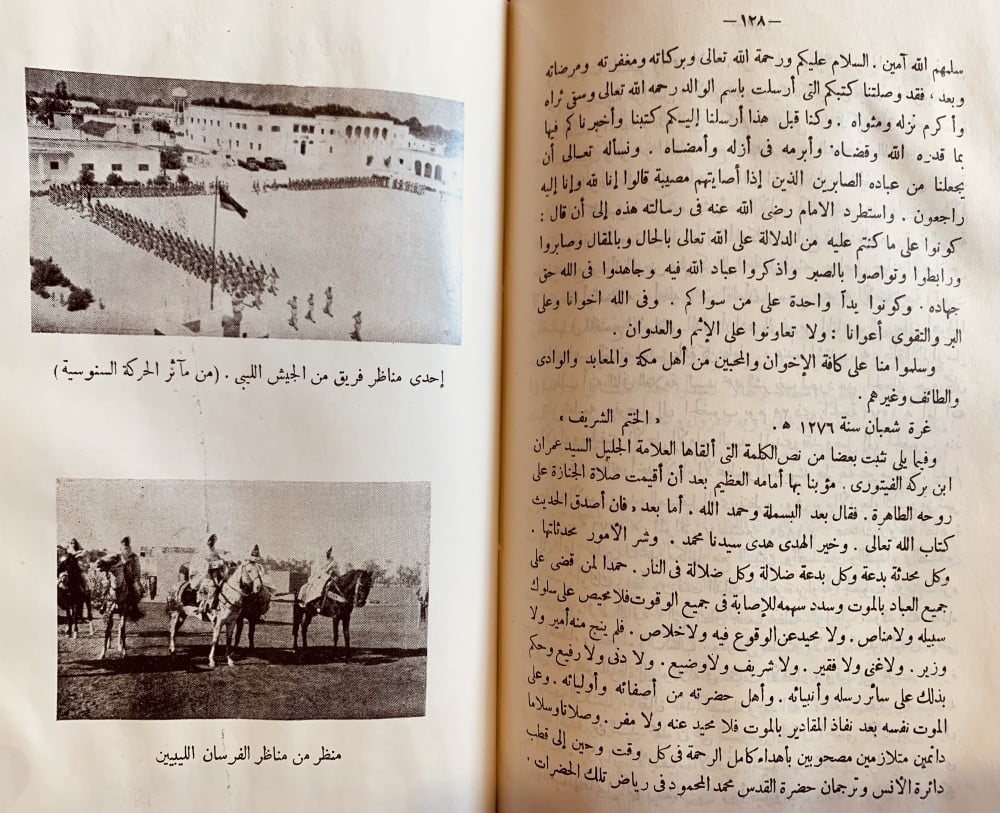 — ١٢٨ —
سلمهم الله آمين . السلام عليكم ورحمة الله تعالى وبركاته ومغفرته ومرضاته
وبعد ، فقد وصلتنا كتبكم التى أرسلت باسم الوالد رحمه الله تعالى وسقى ثراه
وأكرم نزله ومثواه . وكنا قبل هذا أرسلنا إليكم كتبنا وأخبرناكم فيها
بما قدره الله وقضاه وأبرمه فى أزله وأمضاه . ونسأله تعالى أن
يجعلنا من عباده الصابرين الذين إذا أصابتهم مصيبة قالوا إنا لله وإنا إليه
راجعون . واستطرد الامام رضى الله عنه فى رسالته هذه إلى أن قال :
كونوا على ما كنتم عليه من الدلالة على الله تعالى بالحال وبالمقال وصابروا
ورابطوا وتواصوا بالصبر واذكروا عباد الله فيه وجاهدوا فى الله حق
جهاده . وكونوا يداً واحدة على من سواكم . وفى الله اخوانا وعلى
البر والتقوى أعوانا : ولا تعاونوا على الإثم والعدوان .
وسلموا منا على كافة الإخوان والمحبين من أهل مكة والمعابد والوادى
والطائف وغيرهم .
غرة شعبان سنة ١٢٧٦ هـ . « الختم الشريف »
وفيما يلى نثبت بعضا من نص الكلمة التى ألقاها العلامة الجليل السيد عمران
ابن بركه الفيتورى . مؤبنا بها أمامه العظيم بعد أن أقيمت صلاة الجنازة على
روحه الطاهرة . فقال بعد البسملة وحمد الله . أما بعد ، فان أصدق الحديث
كتاب الله تعالى . وخير الهدى هدى سيدنا محمد . وشر الأمور محدثاتها .
وكل محدثة بدعة وكل بدعة ضلالة وكل ضلالة فى النار . حمدا لمن قضى على
جميع العباد بالموت وسدد سهمه للإصابة فى جميع الوقوت فلا محيص على سلوك
سبيله ولا مناص . ولا محيد عن الوقوع فيه ولا خلاص . فلم ينج منه أمير ولا
وزير . ولا غنى ولا فقير . ولا شريف ولا وضيع . ولا دنى ولا رفيع وحكم
بذلك على سائر رسله وأنبيائه . وأهل حضرته من أصفائه وأوليائه . وعلى
الموت نفسه بعد نفاذ المقادير بالموت فلا محيد عنه ولا مفر . وصلاتا وسلاما
دائمين متلازمين مصحوبين بأهداء كامل الرحمة فى كل وقت وحين إلى قطب
دائرة الأنس وترجمان حضرة القدس محمد المحمود فى رياض تلك الحضرات .
إحدى مناظر فريق من الجيش الليبى . (من مآثر الحركة السنوسية)
منظر من مناظر الفرسان الليبيين